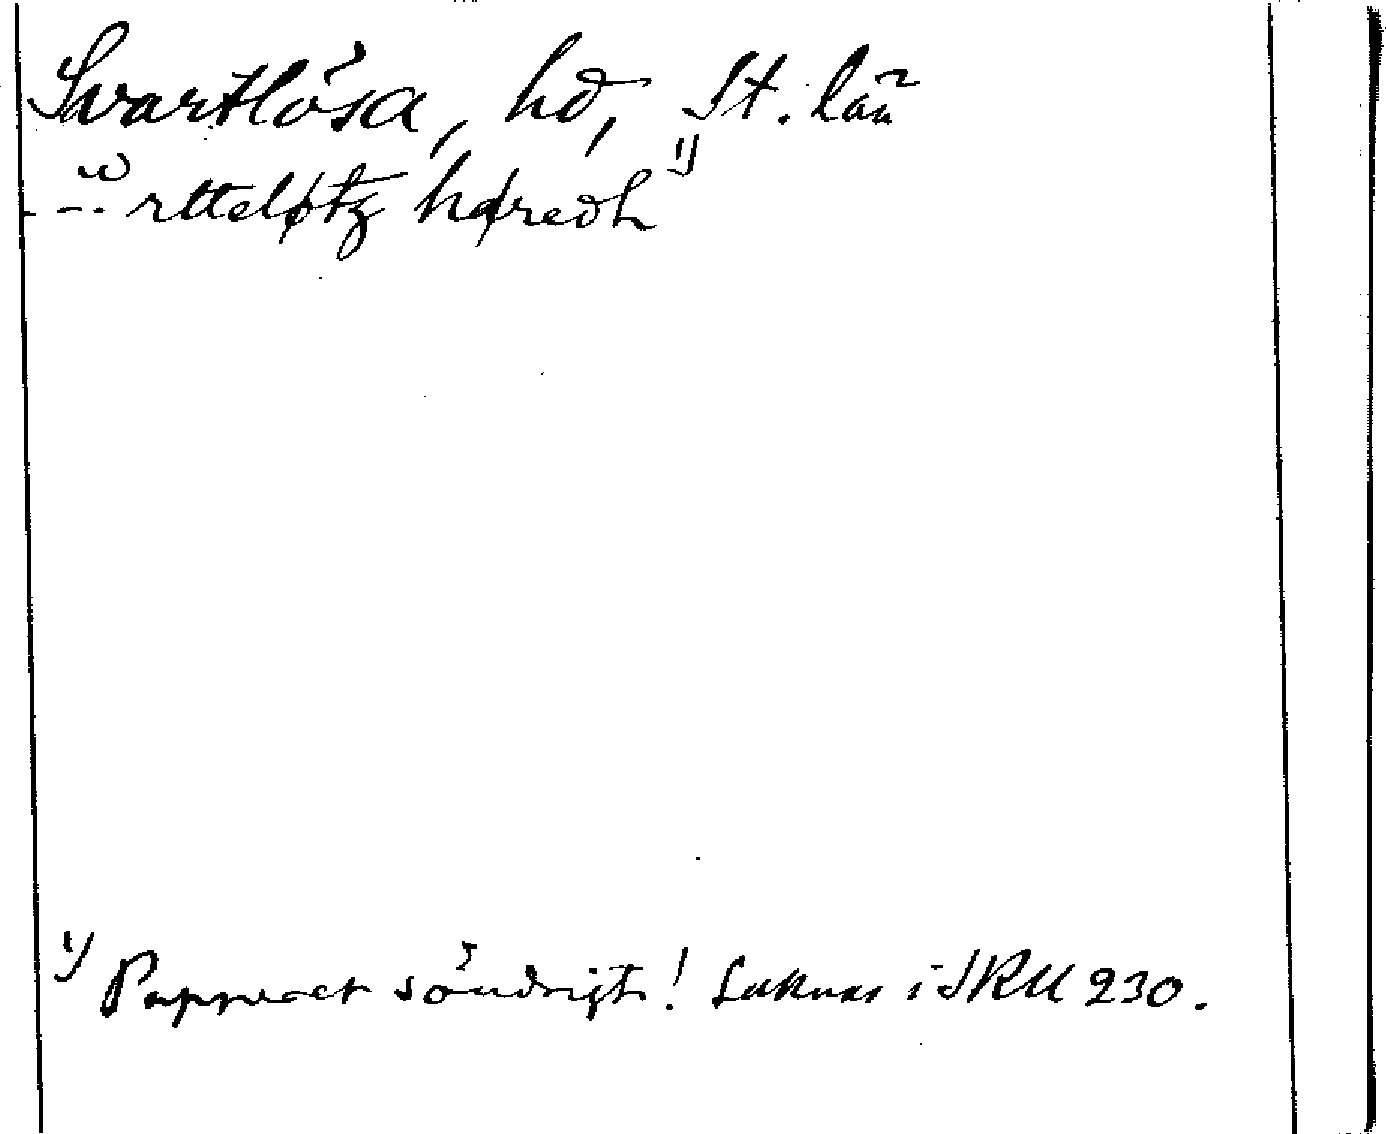 Svartlösa, hd, St. län
--- rtteløtz hǿredh 1)
1) Papperet söndrigt! Saknas i SRU 230.